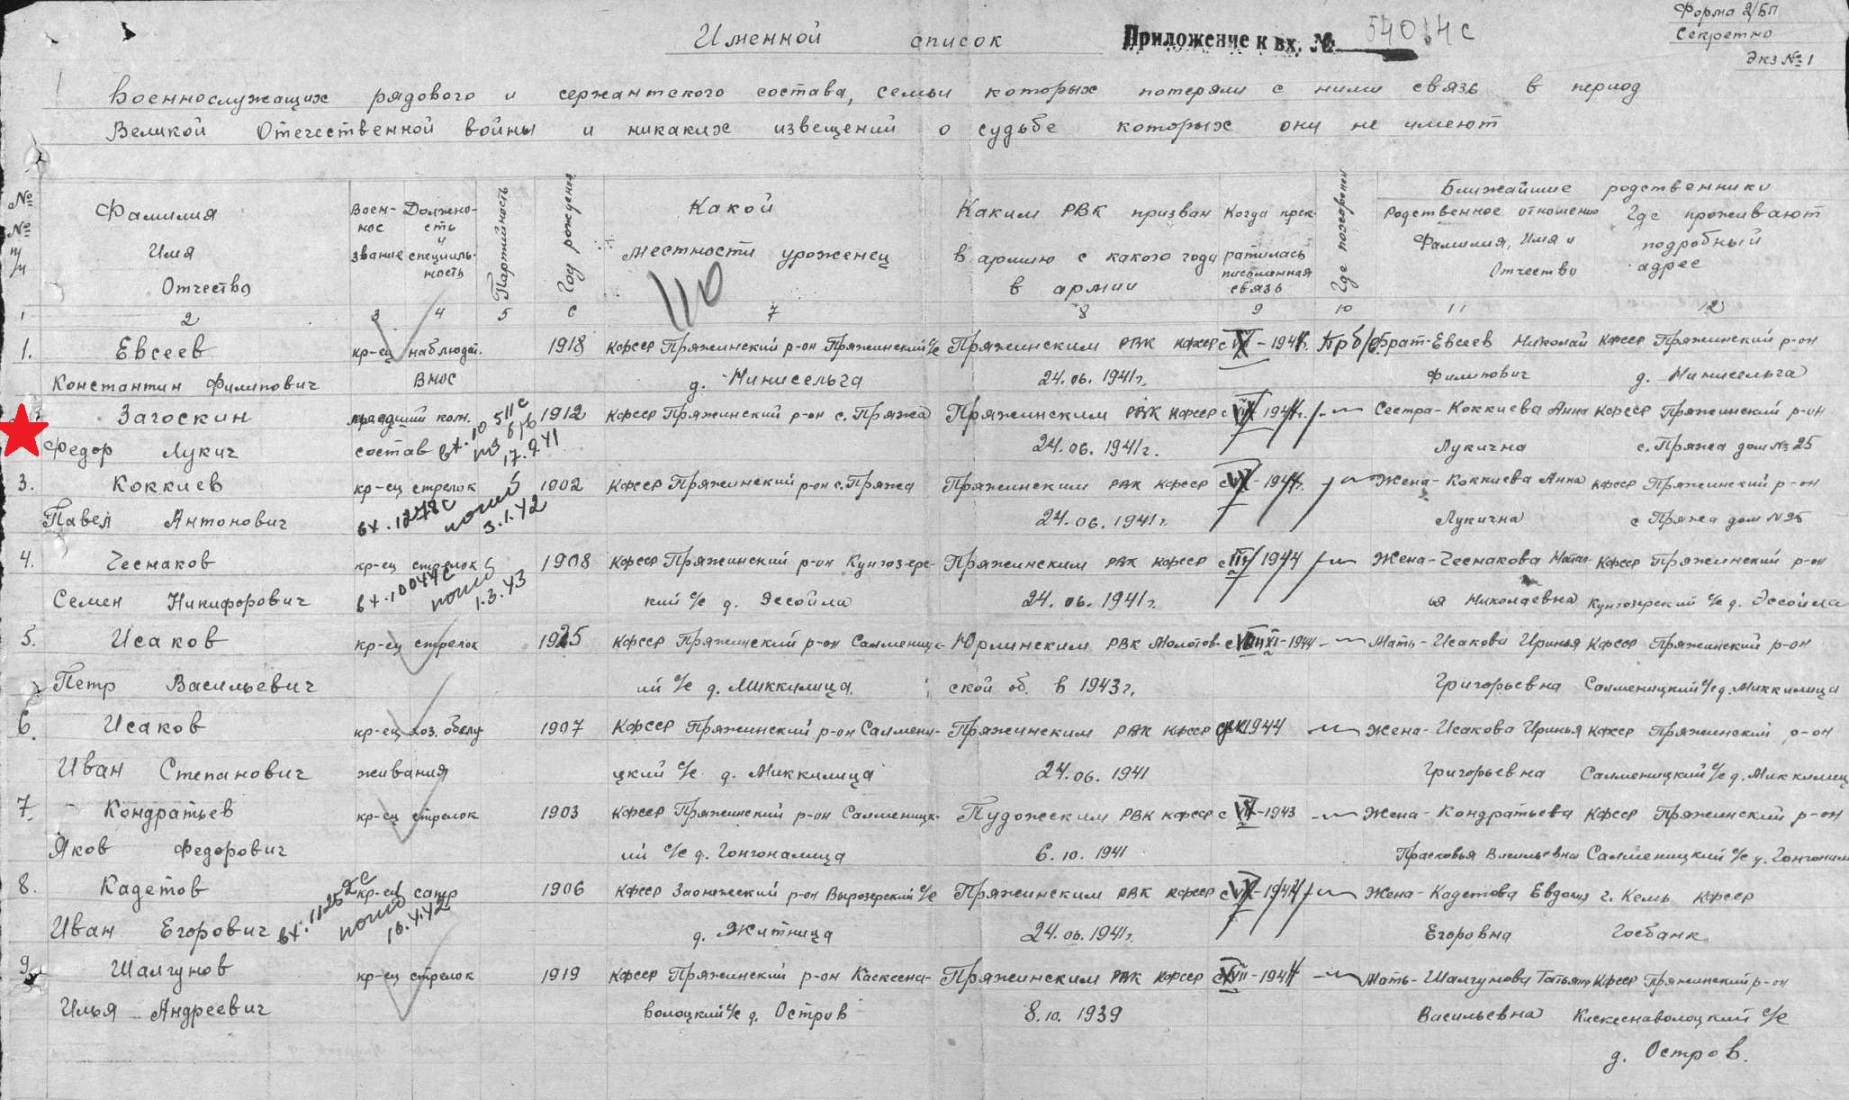 Форма 2/БП
Секретно
Экз №1
Именной список
Приложение к вх. №
военнослужащих рядового и сержантского состава, семьи которых потеряли с ними связь в период
Великой Отечественной войны и никаких извещений о судьбе которых они не имеют
№№ п/п
Фамилия Имя Отчество
Воен-ное звание
Должно-сть и специаль-ность
Партийность
Год рождения
Какой местности уроженец
Каким РВК призван в армию с какого года в армии
Когда прек-ратилась письменная связь
Где похоронен
Ближайшие родственники
Родственное отношение Фамилия, Имя и Отчество
Где проживают подробный адрес
1 2 3 4 5 6 7 8 9 10 11 12
110
1. Евсеев кр-ец наблюдат. 1918 Кфсср Пряжинский р-он Пряжинский с/с Пряжинским РВК кфсср Брат-Евсеев Николай Кфсср Пряжинский р-он
Константин Филипович ВНОС д. Минисельга 24.06.1941г. Филипович д. Минисельга
Загоскин 1912 Кфсср Пряжинский р-он с. Пряжа Пряжинским РВК Кфсср Сестра-Коккиева Анна Кфсср Пряжинский р-он
Федор Лукич состав 17.9.41 24.06.1941г. Лукична с. Пряжа дом №25
3. Коккиев кр-ец стрелок 1902 Кфсср Пряжинский р-он с. Пряжа Пряжинским РВК Кфсср Жена-Коккиева Анна Кфсср Пряжинский р-он
Павел Антонович вх.1278с погиб 3.1.42 24.06.1941г. Лукична с Пряжа дом №25
4. Чесноков кр-ец стрелок 1908 Кфсср Пряжинский р-он Кунгозерс- Пряжинским РВК Кфсср 1944 Жена-Чеснокова Кфсср Пряжинский р-он
Семен Никифорович вх.10044с погиб 1.3.43 кий с/с д. Эссойла 24.06.1941г. Николаевна Кунгозерский с/с д. Эссойла
5. Исаков кр-ец стрелок 1925 Кфсср Пряжинский р-он Салменицк- Юрлинским РВК Молотов- 1944 Мать-Исакова Иринья Кфсср Пряжинский р-он
Петр Васильевич ий с/с д. Миккилица ской об. в 1943г. Григорьевна Салменицкий с/с д. Миккилица
6. Исаков кр-ец хоз. обслу 1907 Кфсср Пряжинский р-он Салмени- Пряжинским РВК Кфсср 1944 Жена-Исакова Иринья Кфсср Пряжинский р-он
Иван Степанович живания цкий с/с д. Миккилица 24.06.1941 Григорьевна Салменицкий с/с д. Миккилиц
7. Кондратьев кр-ец стрелок 1903 Кфсср Пряжинский р-он Салменицк- Пудожским РВК Кфсср 1943 Жена-Кондратьева Кфсср Пряжинский р-он
Яков Федорович ий с/с д. Гонгоналица 6.10.1941 Прасковья Васильевна Салменицкий с/с
8. Кадетов кр-ец 1906 Кфсср Заонежский р-он Вырозерский с/с Пряжинским РВК Кфсср Жена-Кадетова г. Кемь Кфсср
Иван Егорович погиб д. Житница 24.06.1941г. Егоровна Госбанк
9. Шалгунов кр-ец стрелок 1919 Кфсср Пряжинский р-он Каскесна- Пряжинским РВК Кфсср Мать-Шалгунова Татьяна Кфсср Пряжинский р-он
Илья Андреевич волоцкий с/с д. Остров 8.10.1939 Васильевна Каскеснаволоцкий с/с
д. Остров.